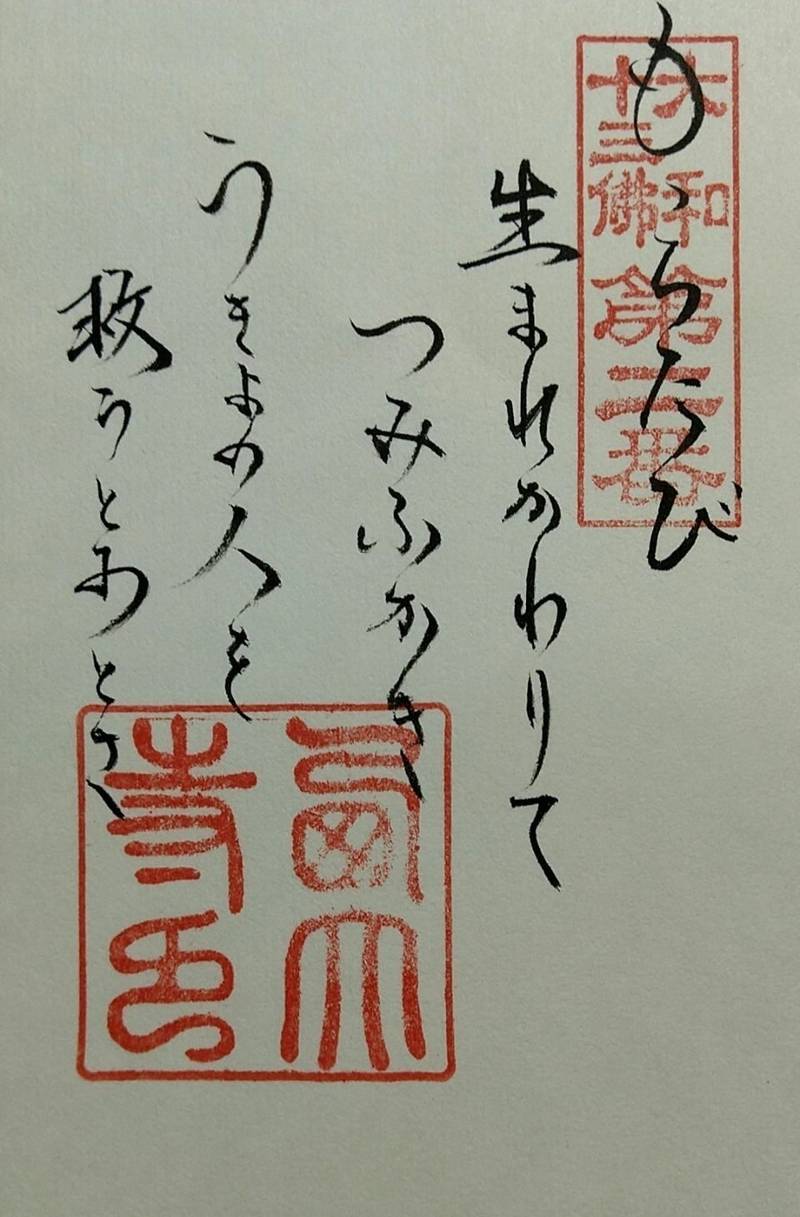 大和
十三佛
第二番
もゝちたび
生まれかわりて
つみふかき
うきよの人を
救うとふとさ
西大
寺印